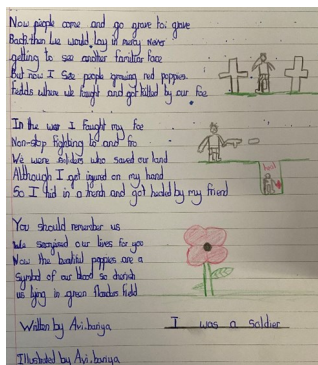 Now people come and go grave to grave
Back then We would lay in mercy Never
getting to see another familiar face
But now I See people growing red poppies
Feilds where we fought and got killed by our foe
In the war I fought my foe
Non-stop fighting to and fro
We were soldiers who saved our land
Although I got injured on my hand
So I hid in a trench and got healed by my friend
You should remember us
We sacrificed our lives for you
Now the beautiful poppies are a
symbol of our blood so cherish
us lying in green flanders field
Written by Avi.bariya
I was a soldier
Illustrated by Avi.bariya